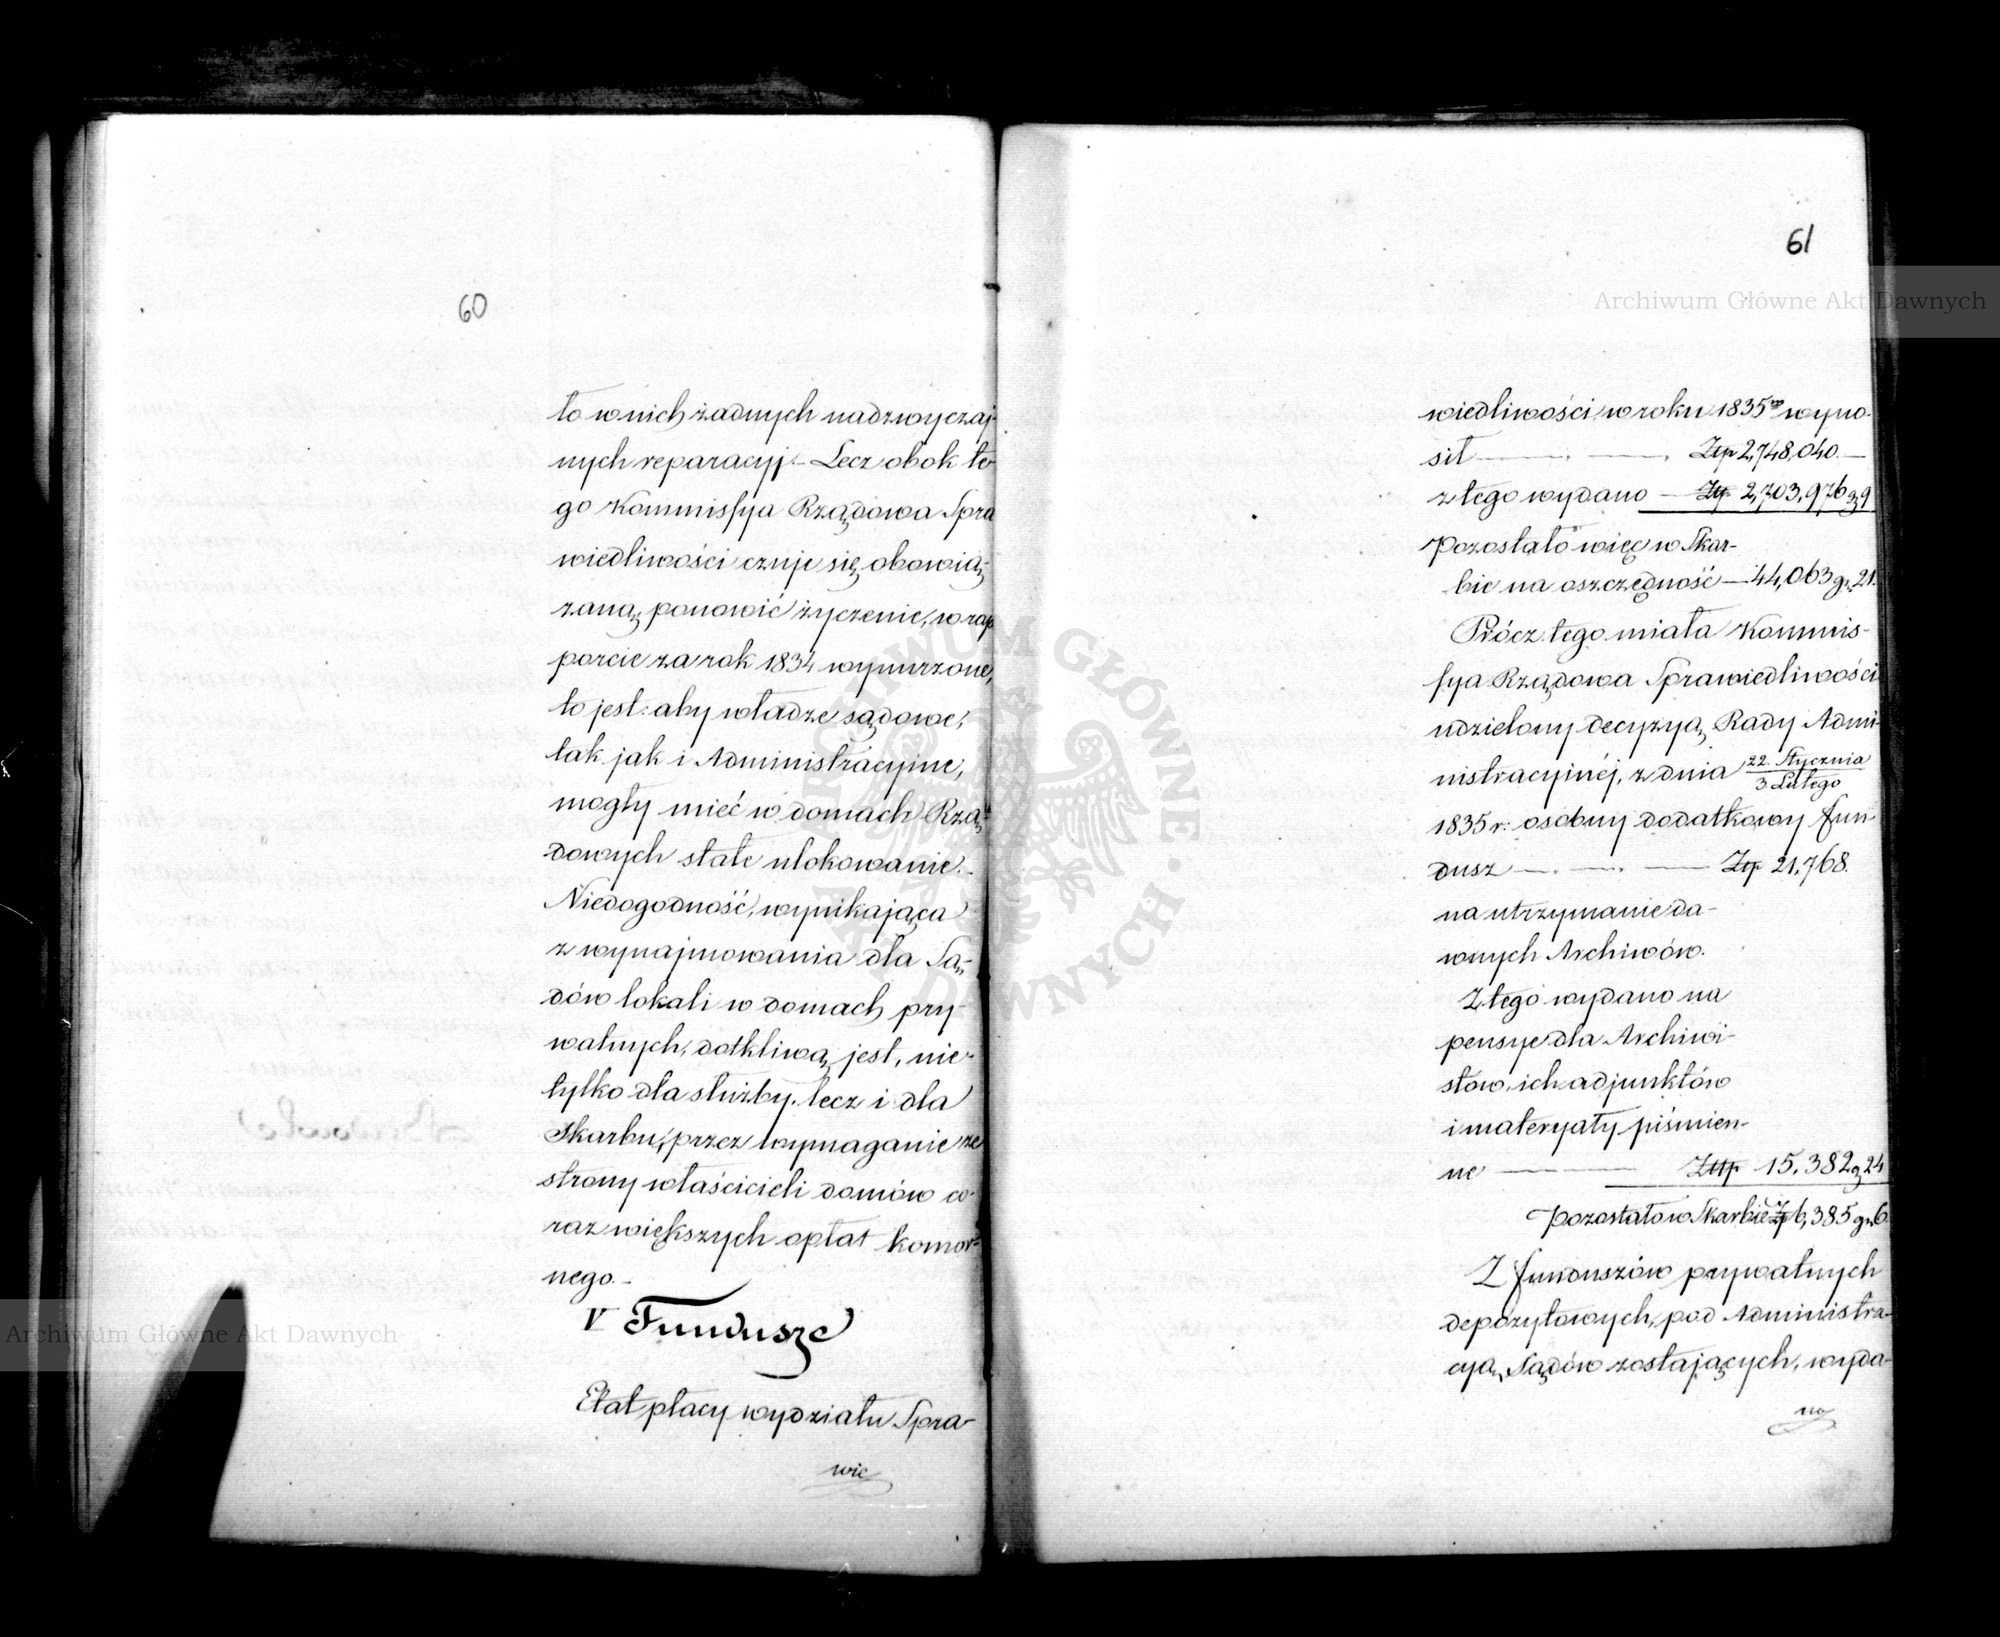 60
to w nich żadnych nadzwyczaj-
nych reparacyj. – Lecz obok te-
go Kommissya Rządowa Spra
wiedliwości czuje się obowią-
zaną ponowić życzenie, w rap
porcie za rok 1834 wynurzone,
to jest: aby władze sądowe,
tak jak i Administracyjne,
mogły mieć w domach Rzą-
dowych stałe ulokowanie. –
Niedogodność, wynikająca
z wynajmowania dla Są-
dów lokali w domach pry-
watnych, dotkliwą jest, nie-
tylko dla służby, lecz i dla
Skarbu, przez wymaganie ze
strony właścicieli domów co-
raz większych opłat komor-
nego. –
V Fundusze
Etat płacy wydziału Spra-
wie
61
wiedliwości w roku 1835m wyno-
sił Złp 2,748,040. —
z tego wydano — Złp 2,703,976 g 9
Pozostało więc w Skar-
bie na oszczędność — 44,063 gr 21.
Prócz tego miała Kommis-
sya Rządowa Sprawiedliwości
udzielony decyzyą Rady Admi-
nistracyjnéj, z dnia 22. Stycznia / 3 Lutego
1835 r: osobny dodatkowy fun-
dusz — Złp 21,768.
na utrzymanie da-
wnych Archiwów.
Z tego wydano na
pensye dla Archiwi-
stów, ich adjunktów
i materyały piśmien-
ne — Złp 15,382 g 24
Pozostało w Skarbie Złp 6,385 gr 6
Z funduszów prywatnych
depozytowych, pod Administra-
cyą Sądów zostających, wyda-
no
Archiwum Główne Akt Dawnych
Archiwum Główne Akt Dawnych
ARCHIWUM GŁÓWNE AKT DAWNYCH